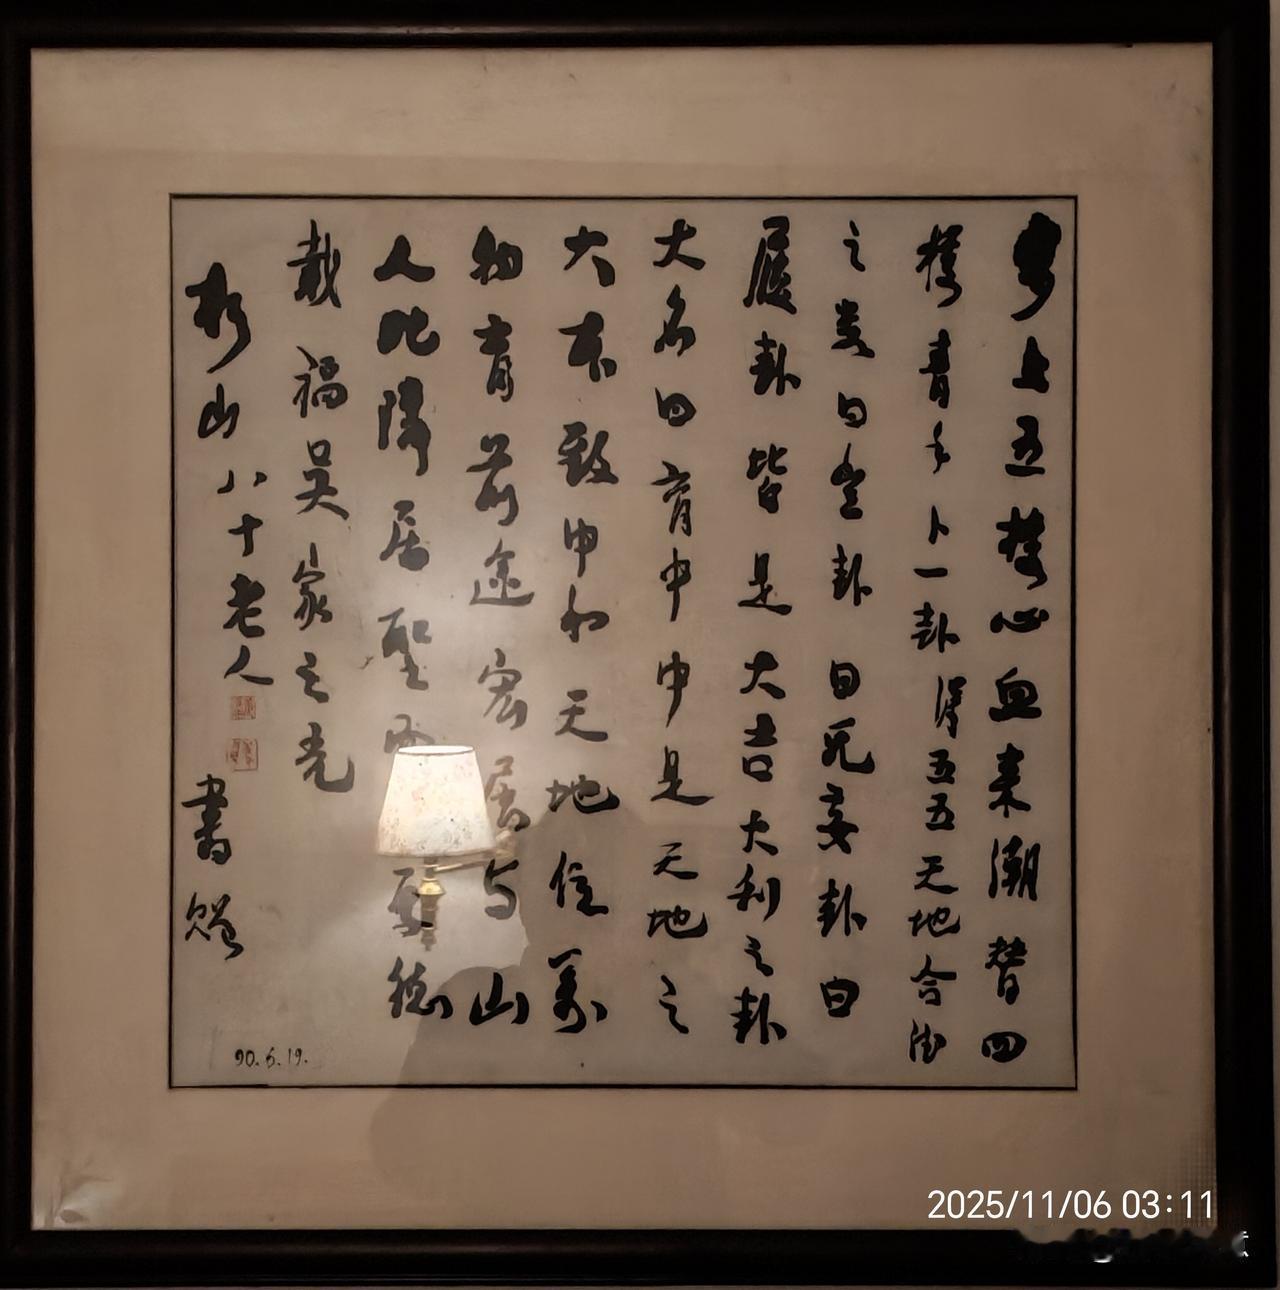 上五楼心血来潮替四
楼青卜一卦得五五天地合
之类曰卦曰无妄卦曰
履卦皆是大吉大利之卦
大名曰育中中是天地之
大本致中和天地位万
物育前途宏展与山
人比隣居聖德
載福吳家之光
山八十老人
書贈
90.6.19.
2025/11/06 03:11